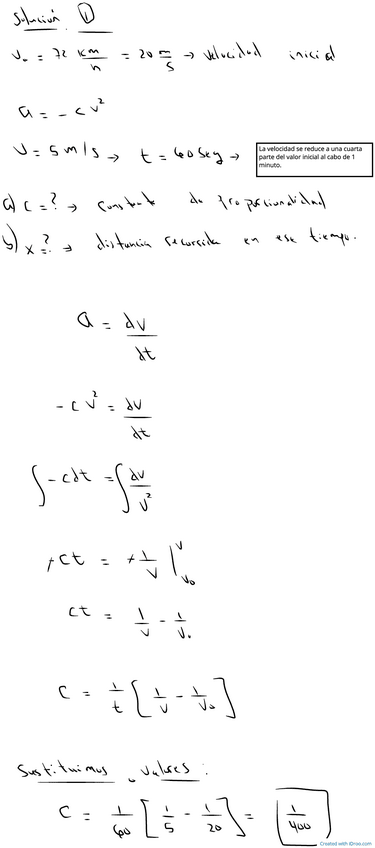 Solución ①
V₀ = 72 km/h = 20 m/s → velocidad inicial
a = - c v²
V = 5 m/s → t = 60 seg →
La velocidad se reduce a una cuarta
parte del valor inicial al cabo de 1
minuto.
a) c = ? → constante de proporcionalidad
b) x = ? → distancia recorrida en ese tiempo.
a = dv/dt
- c v² = dv/dt
∫ - c dt = ∫ dv/v²
+ c t = + 1/v |ᵥ₀ᵛ
c t = 1/v - 1/v₀
c = 1/t [ 1/v - 1/v₀ ]
Sustituimos valores:
c = 1/60 [ 1/5 - 1/20 ] = 1/400
Created with iDroo.com